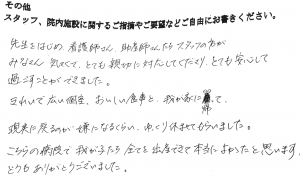 その他
スタッフ、院内施設に関するご指摘やご要望などご自由にお書きください。
先生をはじめ、看護師さん、助産師さんたちスタッフの方が
みなさん 気さくで、とても親切に対応してくださり、とても安心して
過ごすことができました。
きれいで広い個室、おいしい食事と、我が家に帰って、
現実に戻るのが嫌になるくらい、ゆっくり休ませてもらいました。
こちらの病院で我が子たち全てを出産できて本当によかったと思います。
どうもありがとうございました。